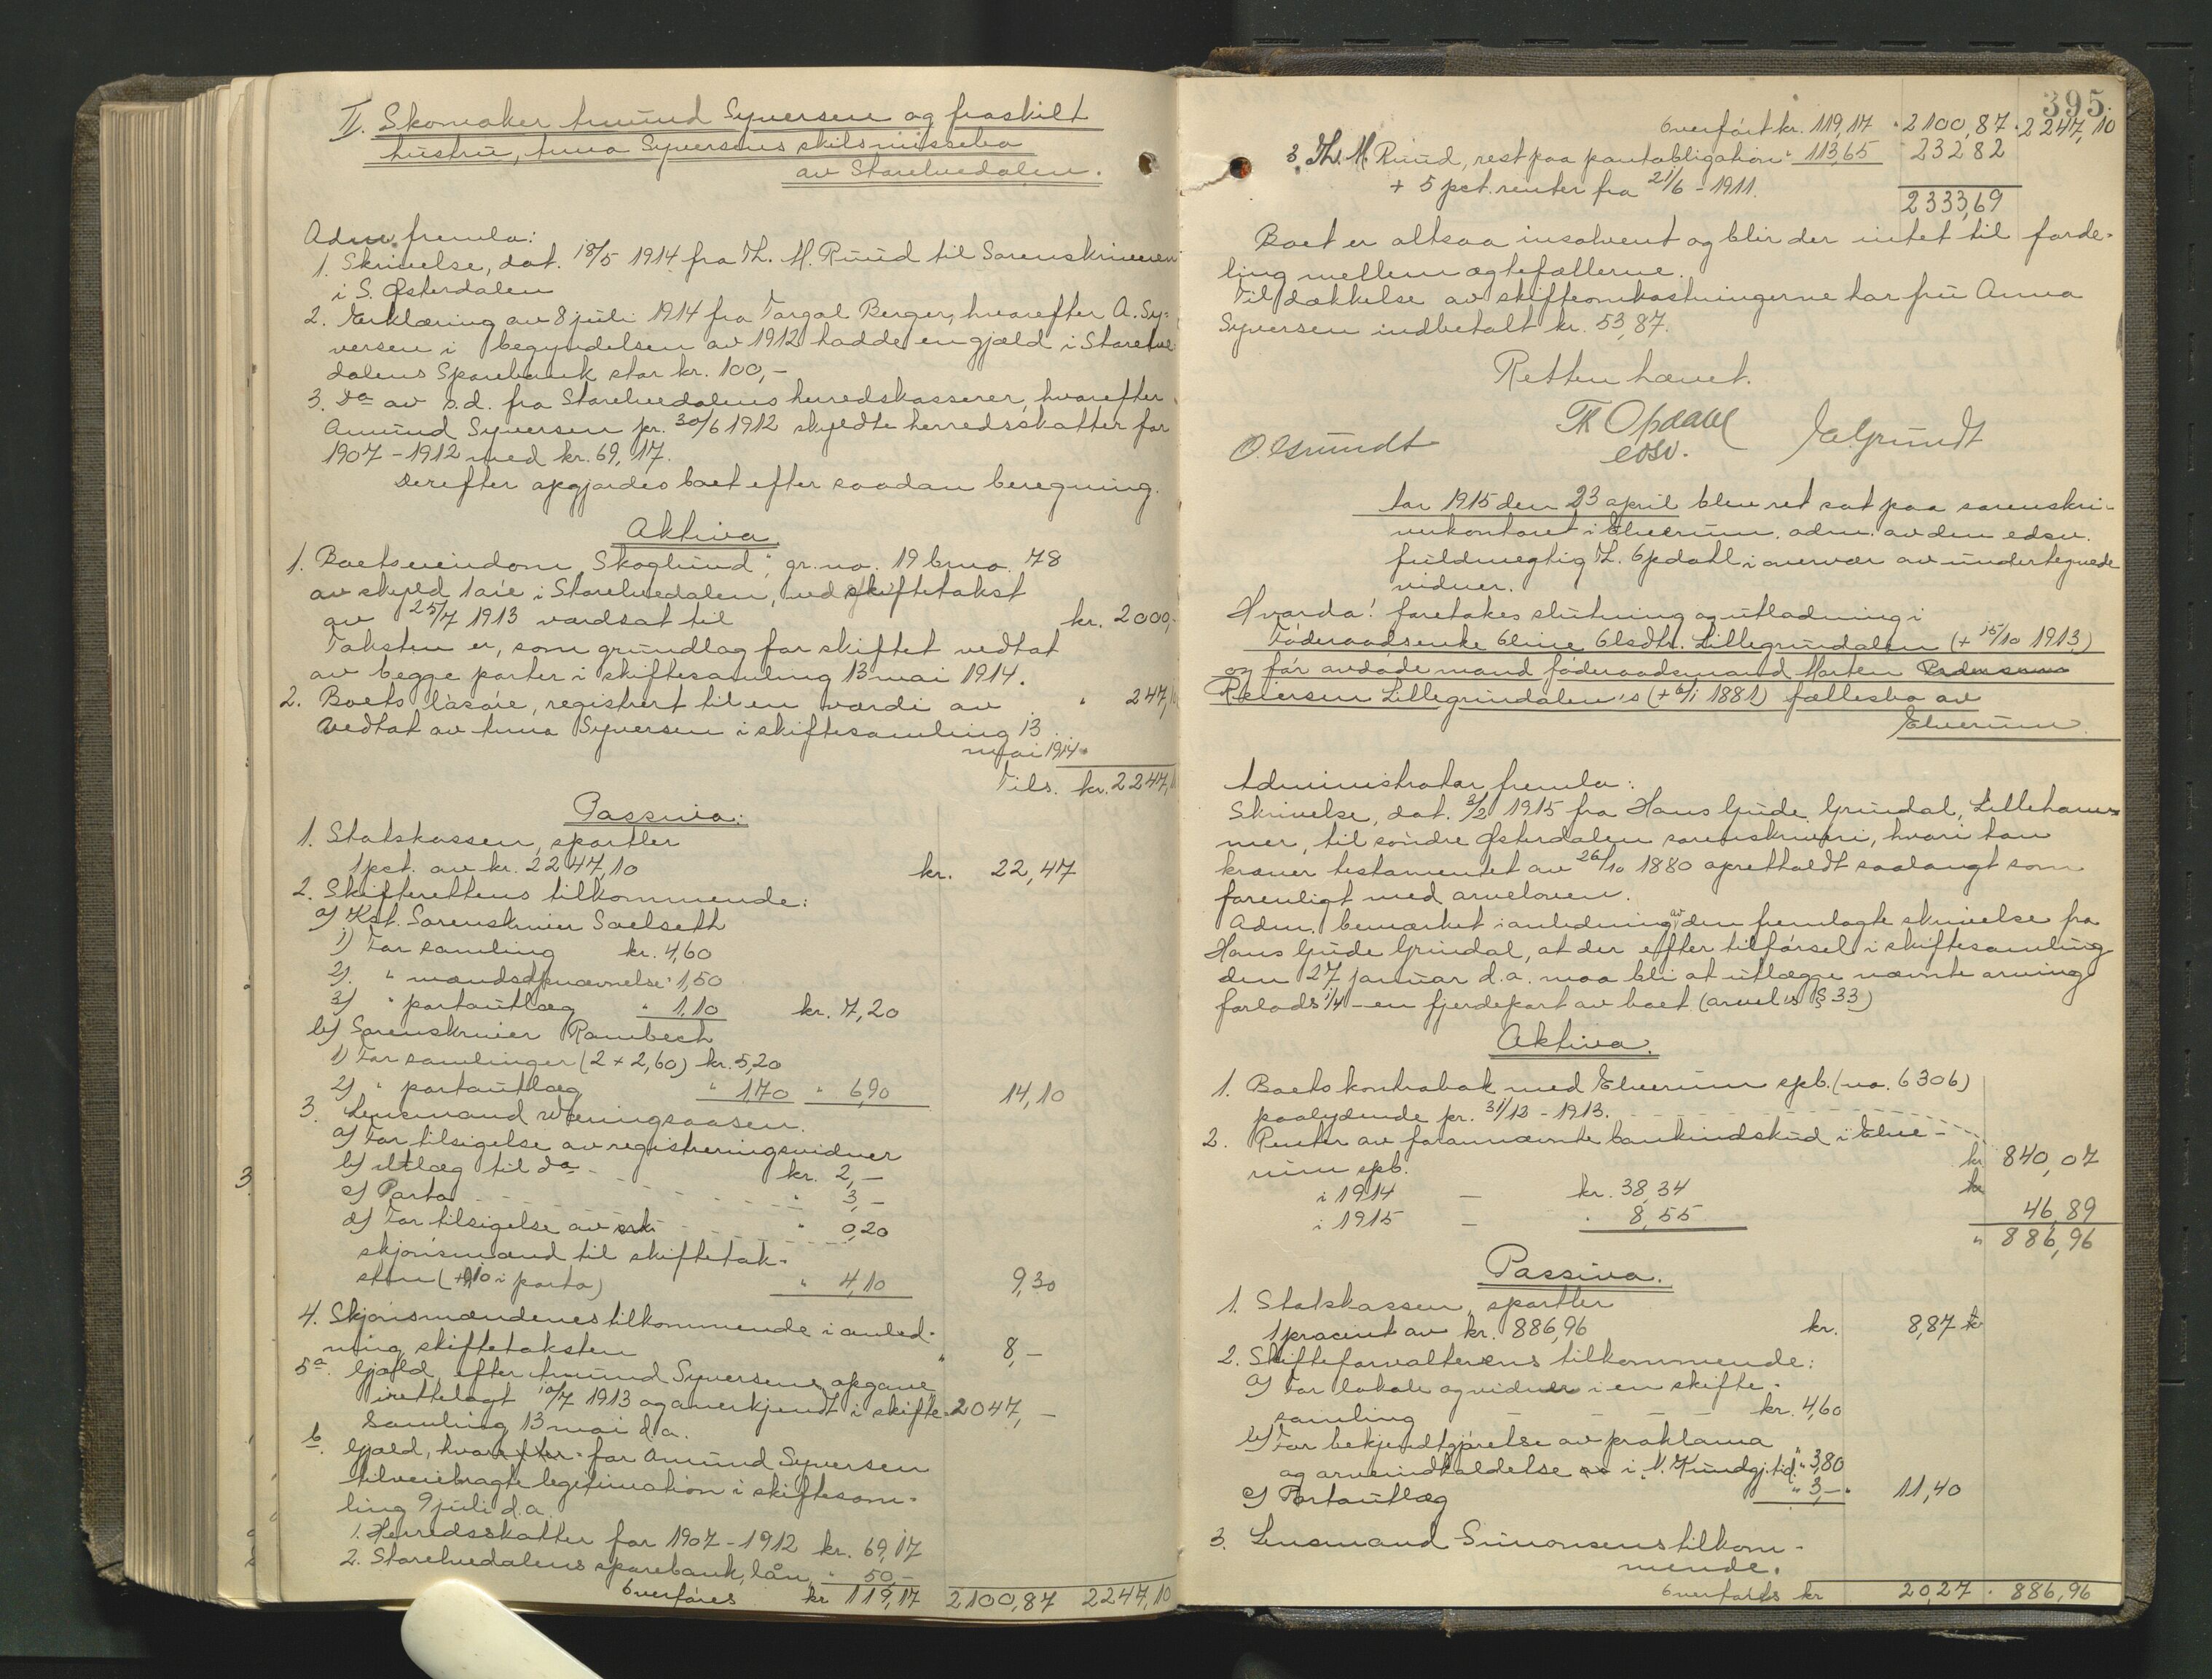 II. Skomaker Amund Syversen og fraskilt
hustru, Anna Syversens skilsmissebo
av Storelvedalen.
Adm. fremla:
1. Skrivelse, dat. 18/5 1914 fra Th. M. Ruud til Sorenskriveren
i S. Østerdalen
2. Erklæring av 8 juli 1914 fra Torgal Berger, hvorefter A. Sy-
versen i begyndelsen av 1912 hadde en gjæld i Storelve-
dalens Sparebank stor kr. 100,-
3. Do av s.d. fra Storelvedalens herredskasserer, hvorefter
Amund Syversen pr. 30/6 1912 skyldte herredsskatter for
1907-1912 med kr. 69,17.
Derefter opgjordes boet efter saadan beregning.
Aktiva.
1. Boets eiendom "Skoglund", gr.no. 19 br.no. 78
av skyld 1 øre i Storelvedalen, ved skiftetakst
av 25/7 1913 værdsat til kr. 2000,-
Taksten er, som grundlag for skiftet vedtat
av begge parter i skiftesamling 13 mai 1914.
2. Boets løsøre, registrert til en værdi av " 247,10
vedtat av Anna Syversen i skiftesamling 13
mai 1914.
Tils. kr. 2247,10
Passiva:
1. Statskassen, sportler
1 pct. av kr. 2247,10 kr. 22,47
2. Skifterettens tilkommende:
a) Kst. Sorenskriver Saelseth
1) For samling kr. 4,60
2) " mændsopnævnelse " 1,50
3) " portoutlæg " 1,10 kr. 7,20
b) Sorenskriver Rambech
1) For samlinger (2 + 2,60) kr. 5,20
2) " portoutlæg " 1,70 " 6,90 14,10
3. Lensmand Wæringsaasen.
a) For tilsigelse av registreringsvidner
b) Utlæg til do - kr. 2,-
c) Porto " 3,-
d) For tilsigelse av " 0,20
skjønsmænd til skiftetak-
sten (+ 10 i porto) " 4,10 9,30
4. Skjønsmændenes tilkommende i anled-
ning skiftetaksten " 8,-
5a. Gjæld, efter Amund Syversens opgave
irettelagt 10/7 1913 og anerkjendt i skifte- " 2047,-
samling 13 mai d.a.
b. Gjæld, hvorefter for Amund Syversen
tilveiebragte legitimation i skiftesam-
ling 9 juli d.a.
1. Herredsskatter for 1907-1912 kr. 69,17
2. Storelvedalens sparebank, lån, " 50,-
Overføres kr 119,17 2100,87 2247,10
3
395.
Overført kr. 119,17 " 2100,87 " 2247,10
3. Th. M. Ruud, rest paa pantobligation " 113,65 232 82
+ 5 pct. renter fra 21/6 - 1911.
2333,69
Boet er altsaa insolvent og blir der intet til forde-
ling mellem ægtefællerne.
Til dækkelse av skifteomkostningerne har fru Anna
Syversen indbetalt kr. 53,87.
Retten hævet.
Th Opdahl
edsv.
O. Grundt
E. Grundt
Aar 1915 den 23 april blev ret sat paa sorenskri-
verkontoret i Elverum. adm. av den edsv.
fuldmægtig Th. Opdahl i overvær av undertegnede
vidner.
Hvorda! foretokes slutning og utlodning i
Føderaadsenke Eline Olsdtr. Lillegrundalen (+ 15/10 1913)
og før avdøde mand føderaadsmand Morten
Reiersen Lillegrundalen's (+ 6/1 1881) fællesbo av
Elverum.
Administrator fremla:
Skrivelse, dat. 3/2 1915 fra Hans Gude Grundal, Lilleham-
mer, til søndre Østerdalen sorenskriveri, hvori han
kræver testamentet av 26/10 1880 opretholdt saalangt som
forenligt med arveloven.
Adm. bemærket i anledning av den fremlagte skrivelse fra
Hans Gude Grundal, at der efter tilførsel i skiftesamling
den 27 januar d.a. maa bli at utlægge nævnte arving
forlods 1/4 - en fjerdepart av boet (arvel.s § 33)
Aktiva.
1. Boets kontrabok med Elverum spb. (no. 6306)
paalydende pr. 31/12 - 1913.
2. Renter av forannævnte bankindskud i Elve-
rum spb. kr 840,07
i 1914 - kr. 38,34 kr
i 1915 - " 8,55 46,89
" 886,96
Passiva.
1. Statskassen, sportler
1 procent av kr. 886,96 kr. 8,87 kr
2. Skifteforvalterens tilkommende:
a) For lokale og vidner i en skifte-
samling kr. 4,60
b) For bekjendtgjørelse av proklama
og arveindkaldelse i N. Kundgj.tid. " 3,80
c) Portoutlæg " 3,- " 11,40
3. Lensmand Simonsens tilkom-
mende.
Overføres kr 20,27 " 886,96